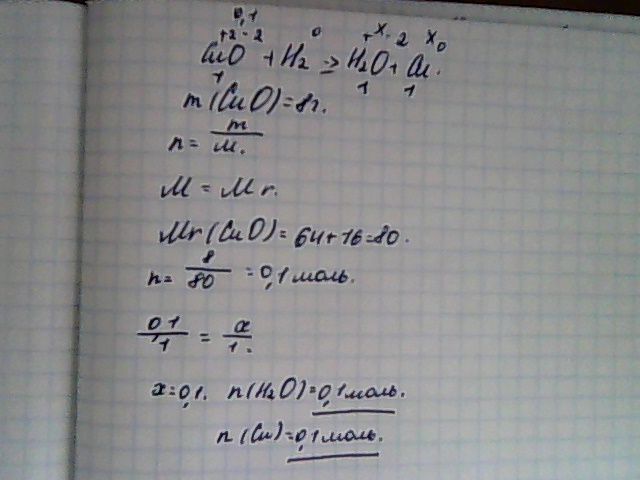 0,1
+2 -2 0 + x -2 x 0
CuO + H₂ => H₂O + Cu.
1 1 1
m (CuO) = 8г.
n = m / M.
M = Mr.
Mr (CuO) = 64 + 16 = 80.
n = 8 / 80 = 0,1 моль.
0,1 / 1 = x / 1.
x = 0,1. n (H₂O) = 0,1 моль.
n (Cu) = 0,1 моль.